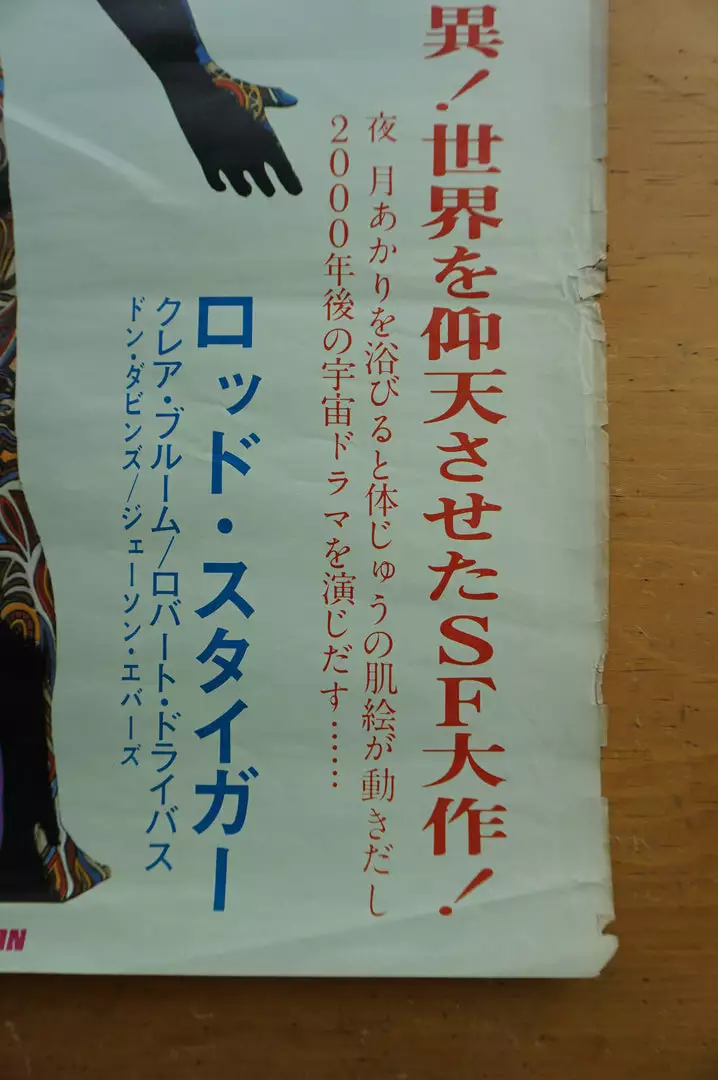 異!世界を仰天させたSF大作!
夜 月あかりを浴びると体じゅうの肌絵が動きだし
2000年後の宇宙ドラマを演じだす……
ロッド・スタイガー
クレア・ブルーム/ロバート・ドライバス
ドン・ダビンズ/ジェーソン・エバーズ